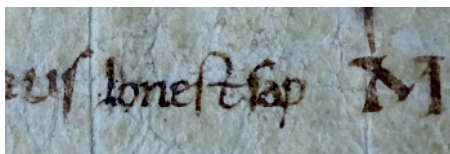 uſ loneſtſap M